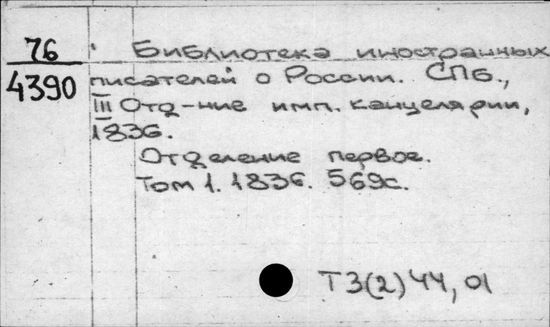 76
4390
Библиотека иностранных
писателей о России. СПб.,
III Отд-ние имп. канцелярии,
1836.
Отделение первое.
Том 1. 1836. 569с.
Т3(2)44,01